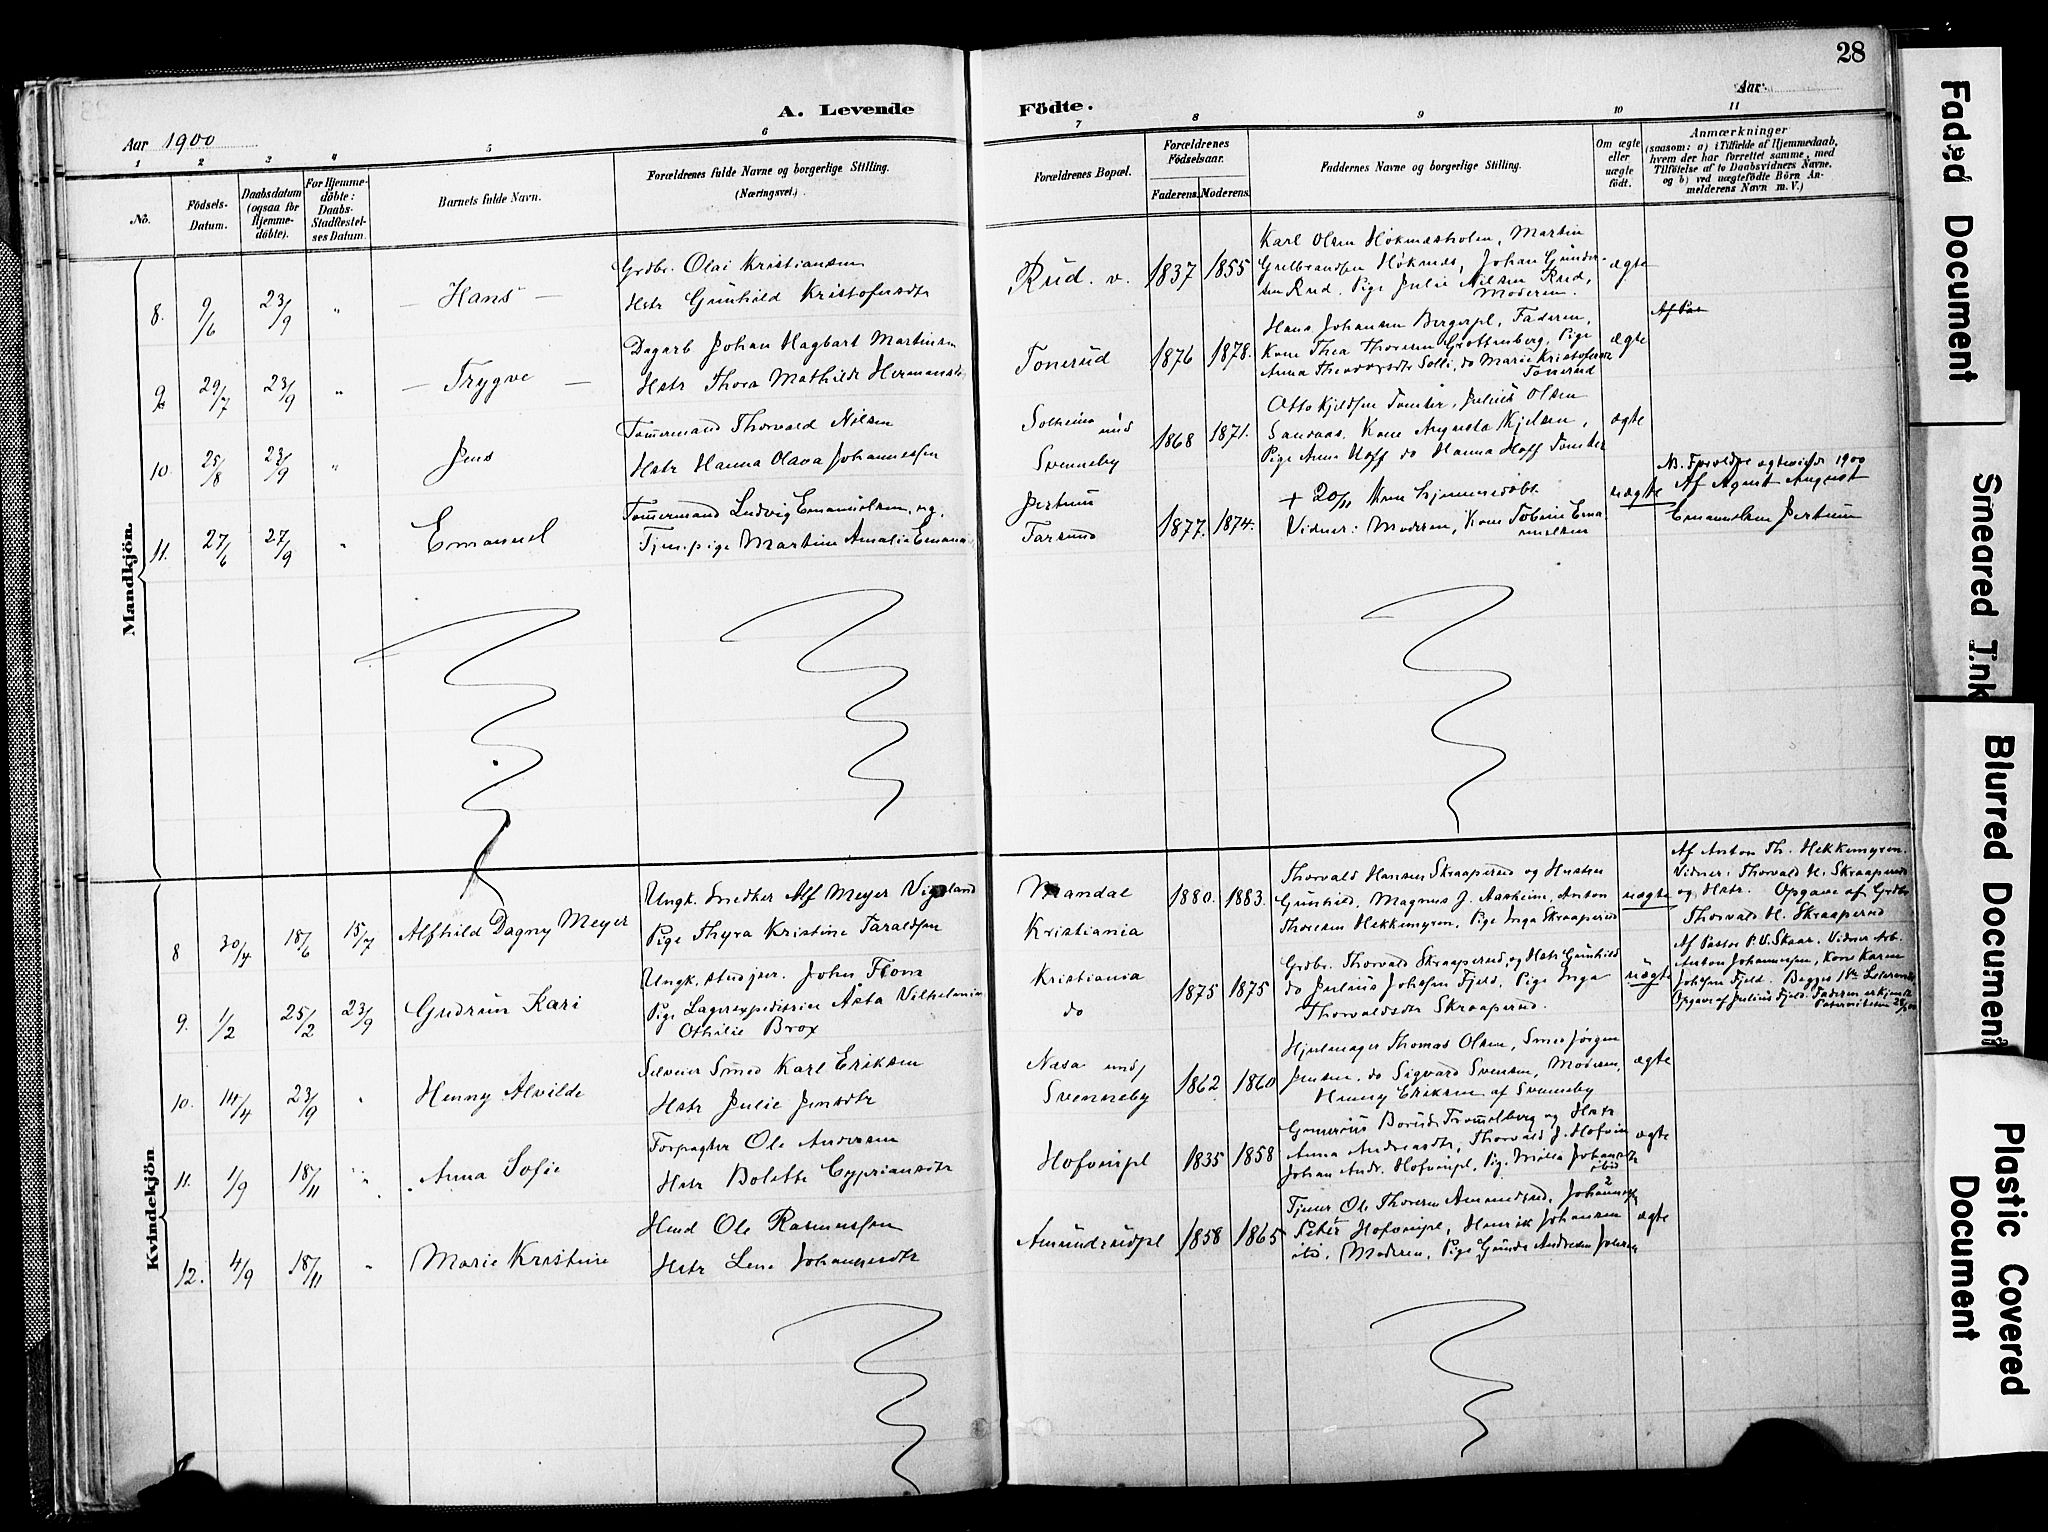 28
Aar 1900
A. Levende
Födte.
Aar
1 2 3 4 5 6 7 8 9 10 11
No.
Födsels-
Datum.
Daabsdatum
(ogsaa för
Hjemme-
döbte).
For Hjemme-
döbte:
Daabs-
Stadfæstel-
ses Datum.
Barnets fulde Navn.
Forældrenes fulde Navne og borgerlige Stilling.
(Næringsvei.)
Forældrenes Bopæl.
Forældrenes
Födselsaar.
Faderens. Moderens.
Faddernes Navne og borgerlige Stilling.
Om ægte
eller
uægte
födt.
Anmærkninger
(saasom: a) i Tilfælde af Hjemmedaab,
hvem der har forrettet samme, med
Tilföielse af to Daabsvidners Navne.
og b) ved uægtefödte Börn An-
melderens Navn m. V.)
Mandkjön.
8. 9/6 23/9 " Hans
Grdbr. Olai Kristiansen
Hstr Gunhild Kristofersdtr
Rud. v. 1837 1855
Karl Olsen Höknæsholm, Martin
Gulbrandsen Höknæs, Johan Gunder-
sen Rud. Pige Julie Nilsen Rud,
Moderen.
ægte
9. 29/7 23/9 " Trygve
Dagarb Johan Hagbart Martinsen
Hstr Thora Mathilde Hermansdtr
Tonerud 1876 1878.
Hans Johansen Bergerpl, Faderen,
Kone Thea Thoresen Grottenberg, Pige
Anna Theodorsdtr Solli, do Marie Kristofersen
Tonerud
ægte
10. 25/8 23/9 " Jens
Tømermand Thorvald Nilsen
Hstr Hanna Olava Johannessen
Solheim und
Svenneby
1868 1871.
Otto Kjeldsen Tomter, Julius Olsen
Sandaas, Kone Augusta Kjelsen,
Pige Anne Hoff do Hanna Hoff Tomter
ægte
11. 27/6 27/9 " Emanuel
Tømermand Ludvig Emanuelsen, og
Tjen.pige Martine Amalie Emanu
Jertum
Farsund
1877. 1874.
+ 20/11 Kun hjemmedöbt
Vidner: Moderen, Kone Tobine Ema-
nuelsen
uægte
NB. Forældre ægteviede 1900
Af Agust August
Emanuelsen Jertum
Kvindekjön.
8 30/4 18/6 15/7 Alfhild Dagny Meyer
Ungk. Smedker Alf Meyer Vigeland
Pige Thyra Kristine Taraldsen
Mandal
Kristiania
1880. 1883.
Thorvald Hansen Skraaperud og Hustru
Gunhild, Magnus J. Aasheim, Anton
Thoresen Hekkemyren, Pige Inga Skraaperud
uægte
Af Anton Th. Hekkemyren.
Vidner: Thorvald H. Skraaperud
og Hstr. Opgave af Grdbr
Thorvald H. Skraaperud
9. 1/2 25/2 23/9 Gudrun Kari
Ungk. stud jur. John Flom
Pige Lagerexpeditrice Asta Vilhelmine
Othilie Brox
Kristiania
do
1875 1875
Grdbr. Thorvald Skraaperud, og Hstr Gunhild
do Julius Johssen Fjeld, Pige Inga
Thorvaldsdtr Skraaperud.
uægte
Af Pastor P. V. Skaar. Vidner Arb.
Anton Johannesen, Kone Karen
Johssen Fjeld. Begges 1ste Leiermaal
Opgave af Julius Fjeld. Faderen erkjendte
Paterniteten
10. 14/4 23/9 " Henny Alvilde
Selveier Smed Karl Eriksen
Hstr Julie Jensdtr
Nasa und/
Svenneby
1862 1860
Hjulmager Thomas Olsen, Smed Jørgen
Jensen, do Sigvard Svensen, Moderen,
Henny Eriksen af Svenneby
ægte
11. 1/9 18/11 " Anna Sofie
Forpagter Ole Andersen
Hstr Bolette Cypriansdtr
Hofvinpl 1835 1858
Borud Trommelberg og Hstr
Anna Andreasdtr, Thorvald J. Hofvin
Johan Andr. Hofvinpl, Pig. Milla Johansdtr
ibid
ægte
12. 4/9 18/11 " Marie Kristine
Hmd Ole Rasmussen
Hstr Lene Johannesdtr
Amundrudpl 1858 1865
Tjener Ole Thoresen Amundrud, Johannes
Peter Hofvinpl, Henrik Johansen
ibd, Moderen, Pige Gunda Andresen
ægte
Faded Document
Smeared Ink
Blurred Document
Plastic Covered
Document